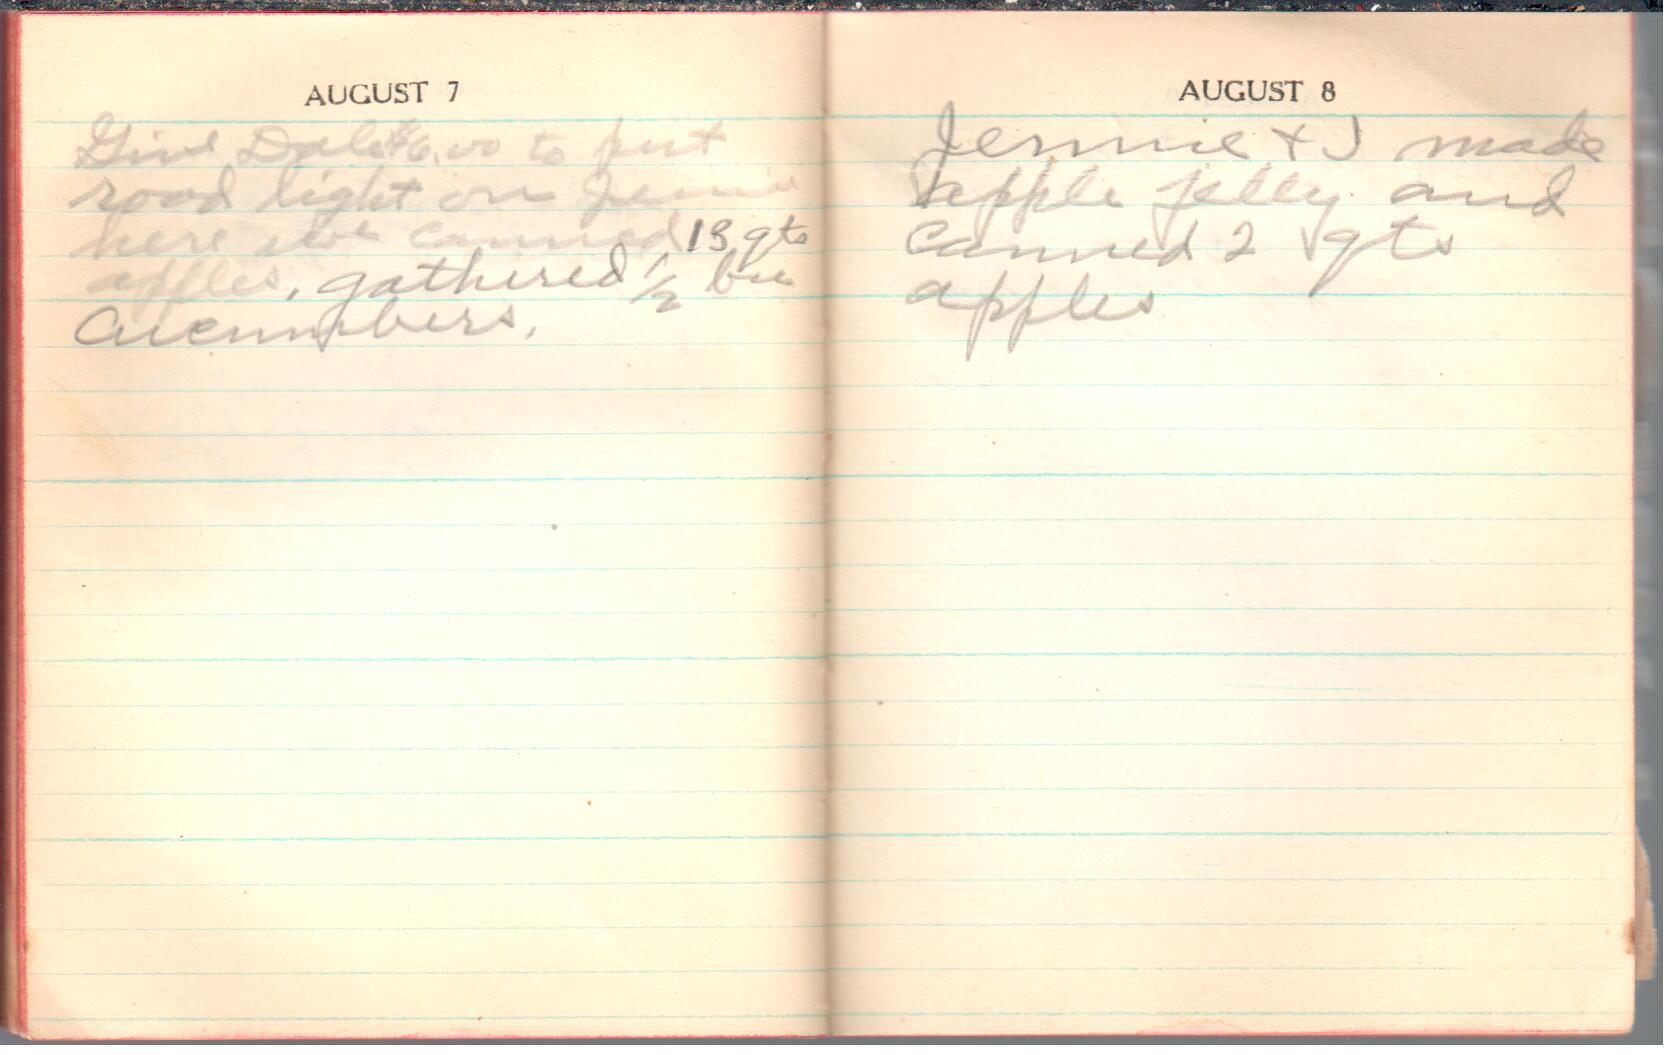 AUGUST 7
Give Dale $6.00 to put
road light on Jennie
here we canned 13 qts
apples, gathered 1/2 bu
Cucumbers.
AUGUST 8
Jennie + I made
apple jelly and
canned 2 qts
apples